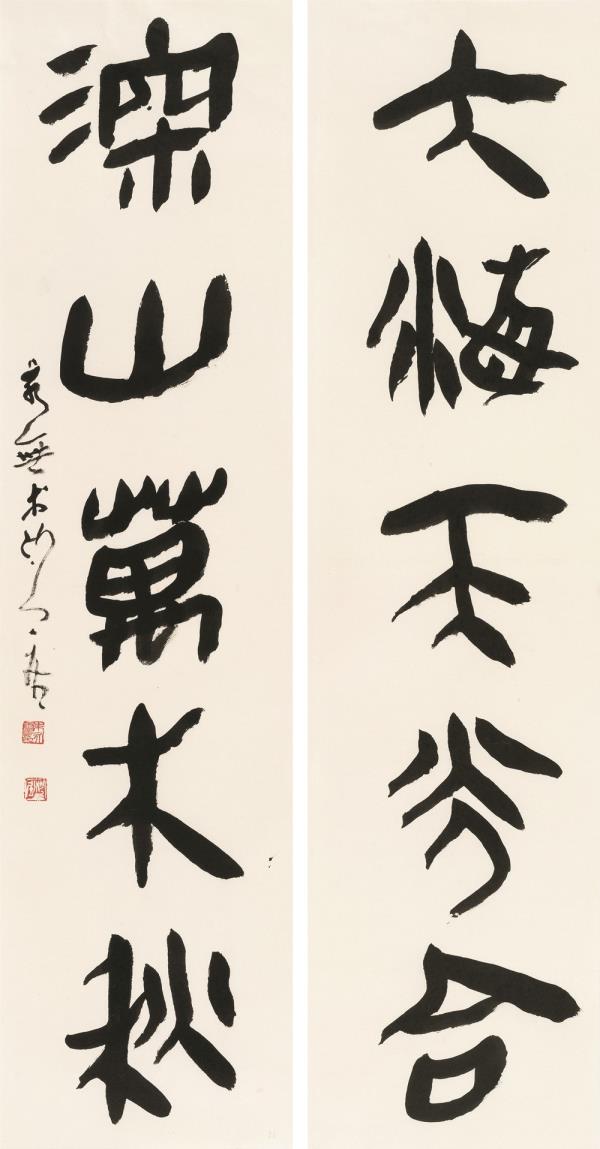 大海天光合
深山萬木秋